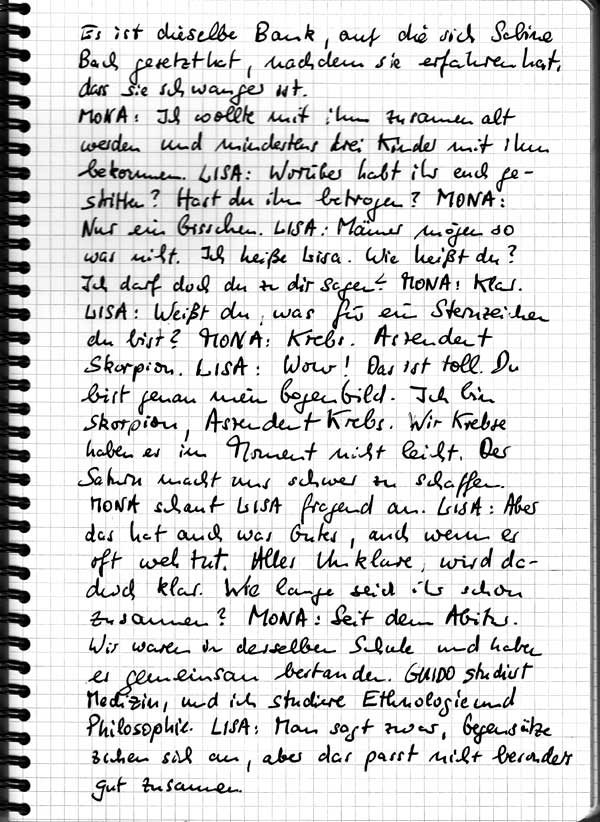 Es ist dieselbe Bank, auf die sich Sabine
Bach gesetzt hat, nachdem sie erfahren hat,
dass sie schwanger ist.
MONA: Ich wollte mit ihm zusammen alt
werden und mindestens drei Kinder mit ihm
bekommen. LISA: Worüber habt ihr euch ge-
stritten? Hast du ihn betrogen? MONA:
Nur ein bisschen. LISA: Männer mögen so
was nicht. Ich heiße Lisa. Wie heißt du?
Ich darf doch du zu dir sagen? MONA: Klar.
LISA: Weißt du, was für ein Sternzeichen
du bist? MONA: Krebs. Aszendent
Skorpion. LISA: Wow! Das ist toll. Du
bist genau mein Gegenbild. Ich bin
Skorpion, Aszendent Krebs. Wir Krebse
haben es im Moment nicht leicht. Der
Saturn macht uns schwer zu schaffen.
MONA schaut LISA fragend an. LISA: Aber
das hat auch was Gutes, auch wenn es
oft weh tut. Alles Unklare, wird da-
durch klar. Wie lange seid ihr schon
zusammen? MONA: Seit dem Abitur.
Wir waren in derselben Schule und haben
es gemeinsam bestanden. GUIDO studiert
Medizin, und ich studiere Ethnologie und
Philosophie. LISA: Man sagt zwar, Gegensätze
ziehen sich an, aber das passt nicht besonders
gut zusammen.